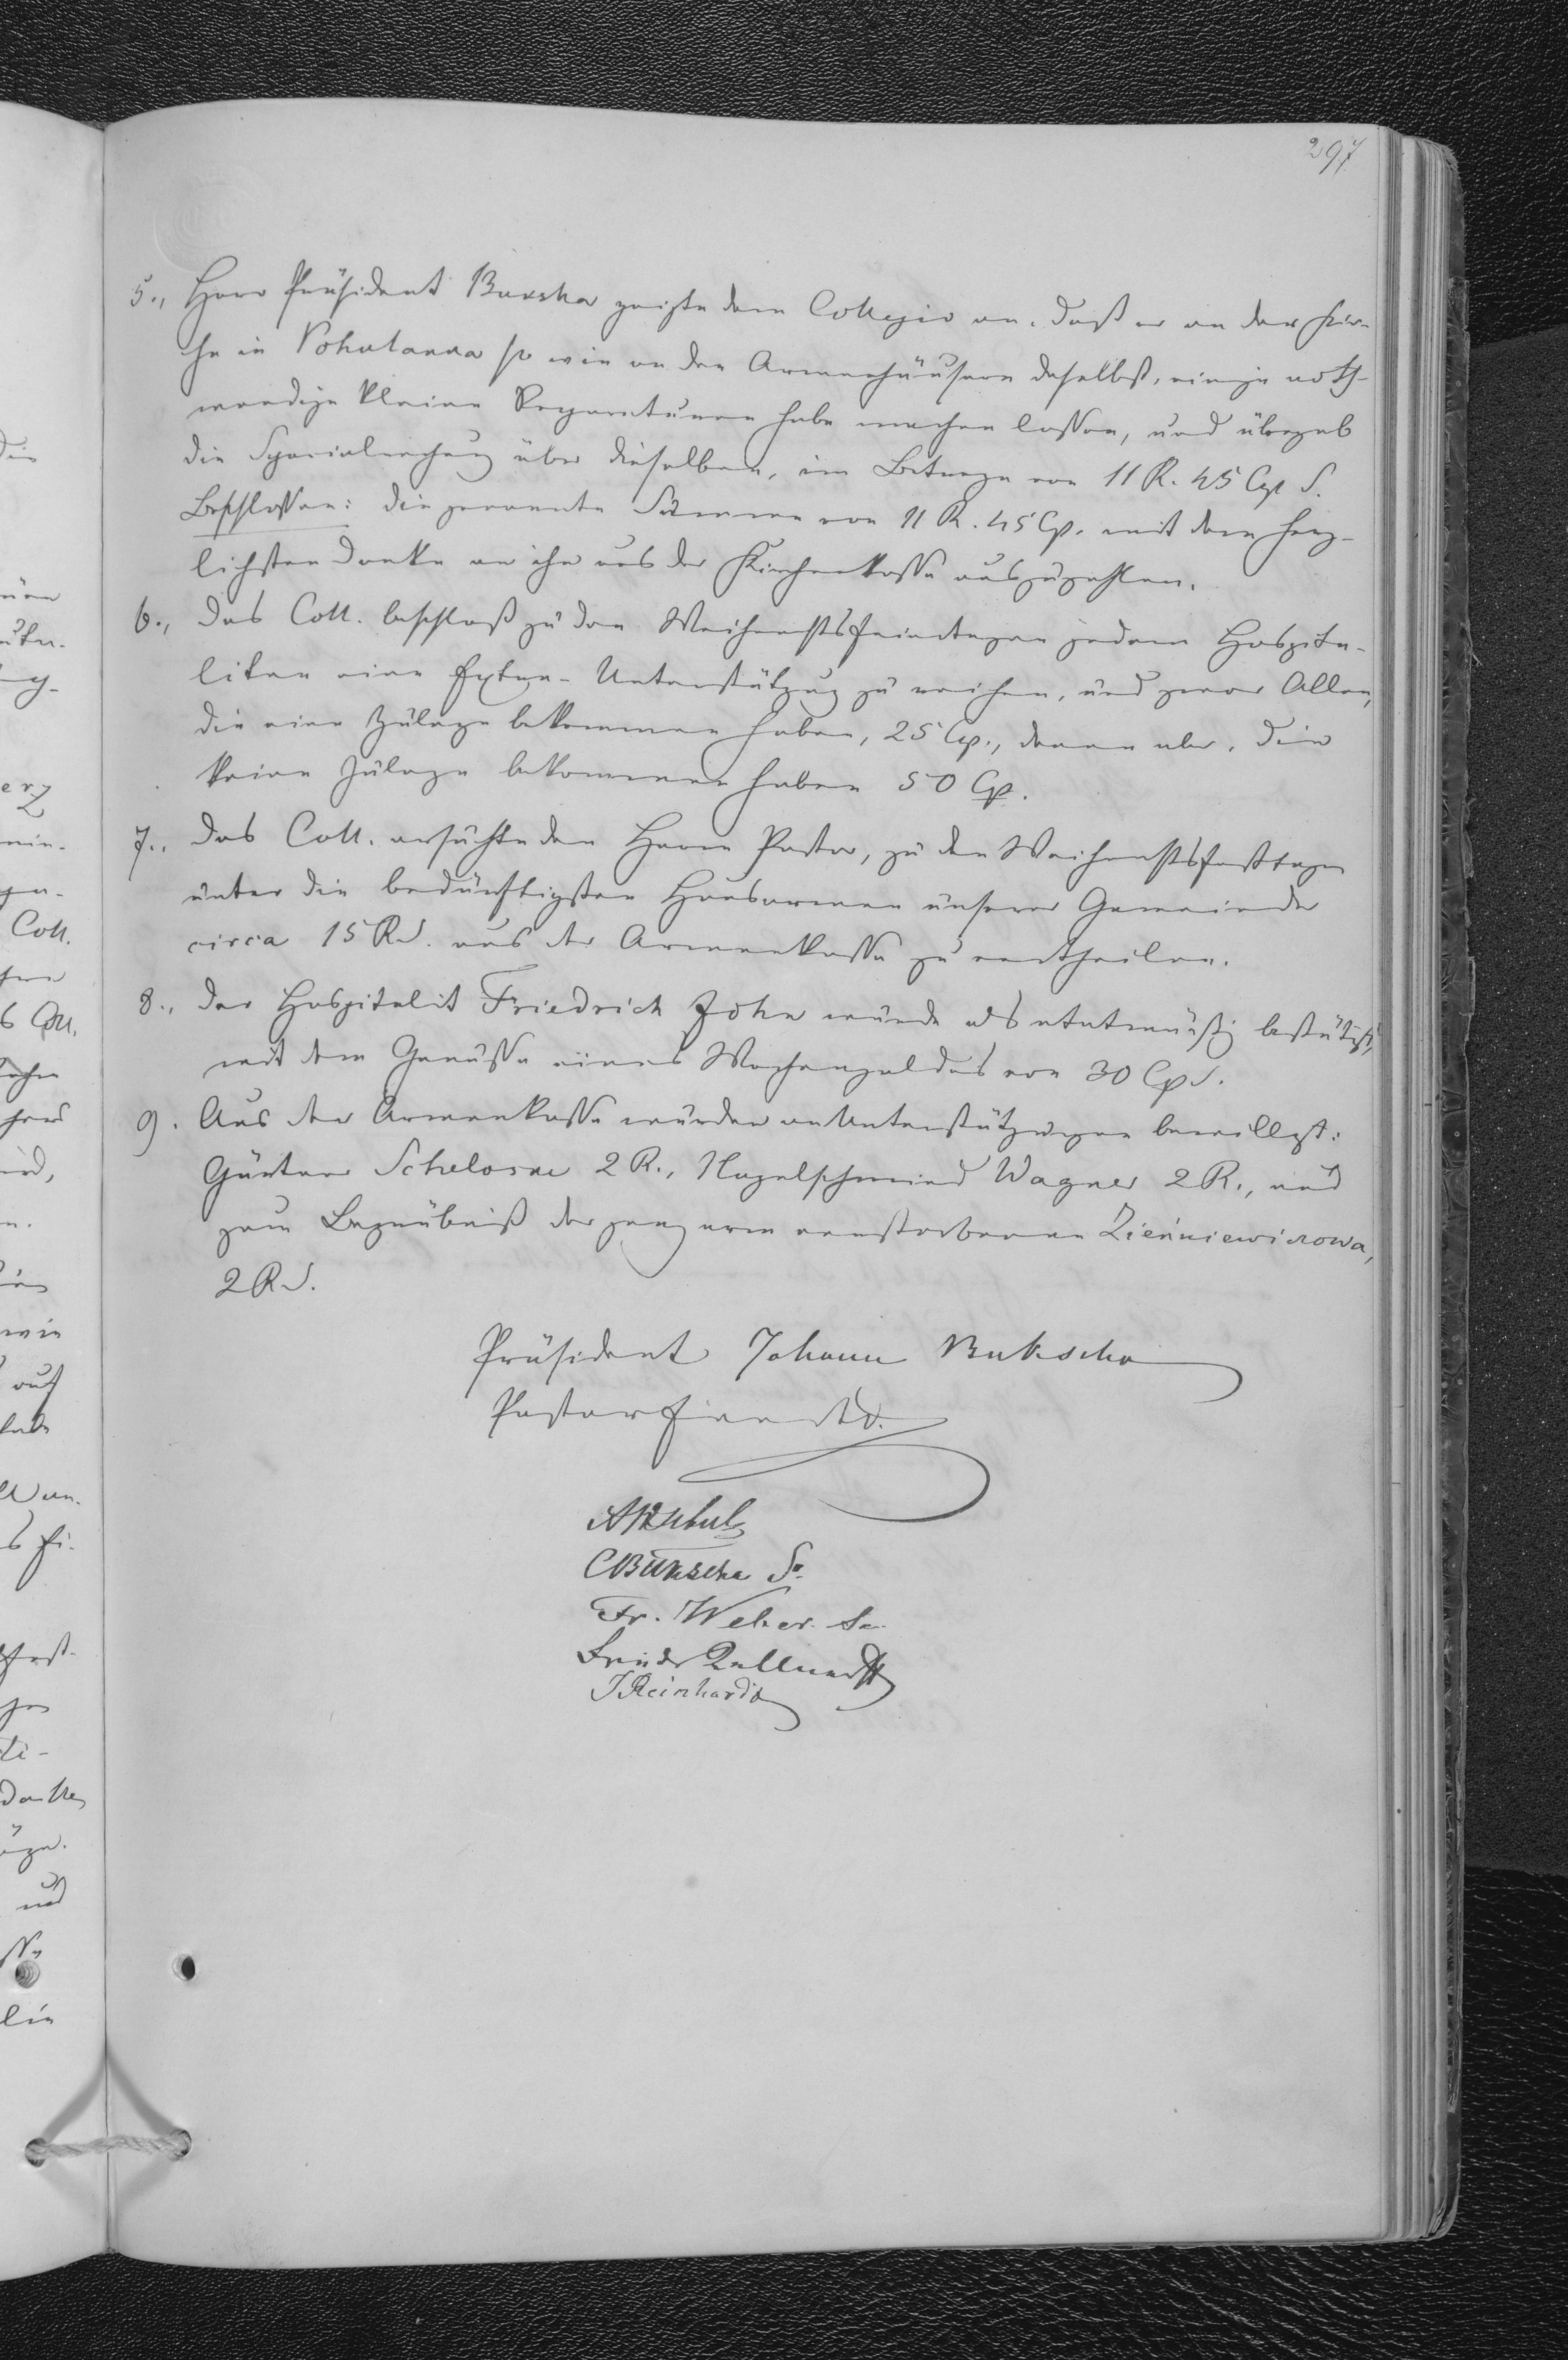 297
5., Herr Präsident Buxsha zeigte dem Collegio an, daß er an der Kir-
che in Pohulanka so wie an den Armenhäusern daselbst, einige noth-
wendige kleine Reparaturen habe machen lassen, und übergab
die Specialrechnung über dieselben, im Betrage von 11 R. 45 Cp S.
Beschlossen: die genannte Summe von 11 R. 45 Cp. mit dem herz-
lichsten Danke an ihn aus der Kirchenkasse auszuzahlen.
6., Das Coll. beschloß zu den Weihnachtsfeiertagen jedem Hospita-
liten eine Extra-Unterstützung zu reichen, und zwar Allen,
die eine Zulage bekommen haben, 25 Cp., denen aber, die
keine Zulage bekommen haben 50 Cp.
7., Das Coll. ersuchte den Herrn Pastor, zu den Weihnachtsfesttagen
unter die bedürftigsten Hausarmen unserer Gemeinde
circa 15 R S. aus der Armenkasse zu vertheilen.
8., Der Hospitalit Friedrich John wurde als etatmäßig bestätigt,
mit dem Genusse eines Wochengeldes von 30 Cp S.
9. Aus der Armenkasse wurden an Unterstützungen bewilligt:
Gärtner Schelosne 2 R., Nagelschmied Wagner 2 R., und
zum Begräbniß der ganz arm verstorbenen Zieńniewiczowa,
2 R S.
Präsident Johann Bukscha
Pastor
CBukscha Sr.
Fr. Weber. Se.
Friedr
J Reinhardt